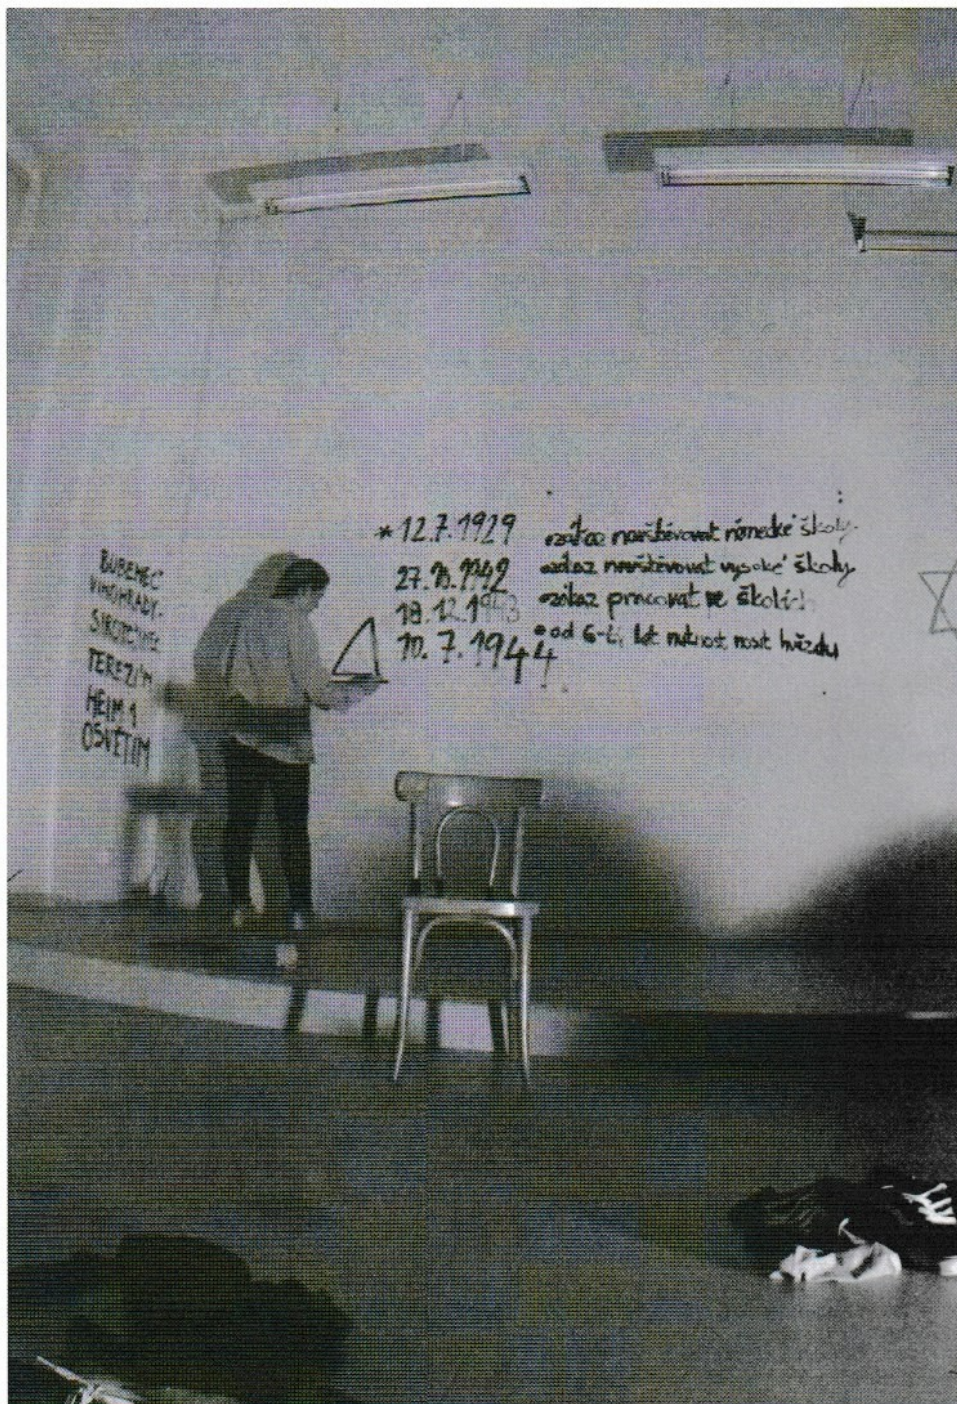 BUBENEČ
VINOHRADY-
SIROTČINEC
TEREZÍN
HEIM 1
OSVĚTIM
*12.7.1929
27.10.1942
18.12.1943
10.7.1944
•zákaz navštěvovat německé školy
•zákaz navštěvovat vysoké školy
•zákaz pracovat ve školích
•od 6-ti let nutnost nosit hvězdu